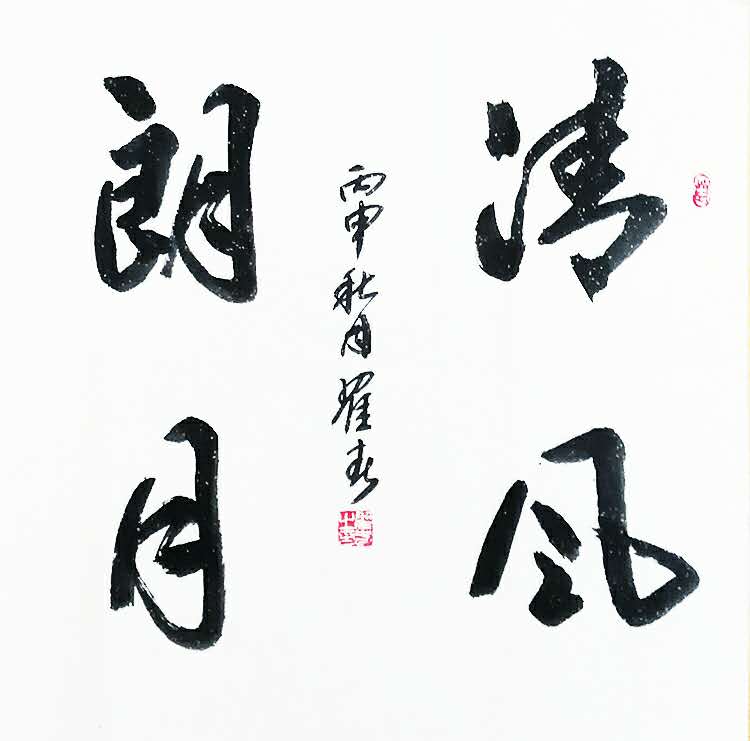 清风
朗月
丙申秋月翟春